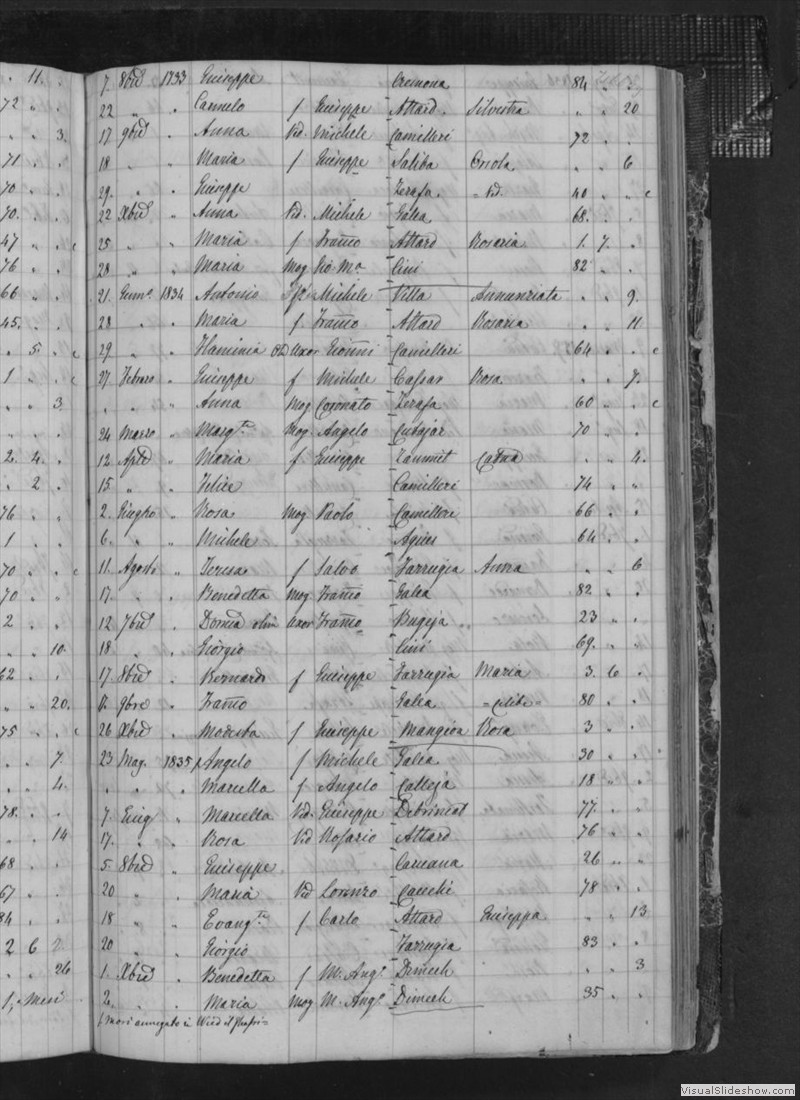 7. 8bre 1733 Giuseppe Cremona 84 . .
22 " . Carmelo f Giuseppe Attard. Silvestra " . 20
17. 9bre . Anna Vid. Michele Camilleri 72 . .
18 " . Maria f Giuseppe Saliba . . 6
29. . . Giuseppe Zerafa. = Vid. 40 . " c
22 Xbre " Anna Vid. Michele Galea 68. . .
25 . " Maria f Franco Attard Rosaria 1. 7. .
28 " . Maria mog Gio Ma Cini 82 . .
21. Genn. 1834 Antonio Michele Vella Annunziata . . 9.
28 . . Maria f Franco Attard Rosaria . . 11
29 . . Flaminia uxor Camilleri 64 . . c
27. Febraro " Giuseppe f Michele Cassar Rosa . . 7.
. . " Anna Mog Coronato Zerafa 60 . . c
24 Marzo " Margta Mog. Angelo Cutajar 70 . .
12 Aple " Maria f Giuseppe Zammit . . 4.
15 " . Felice Camilleri 74 . "
2. Giugno " Rosa mog Paolo Camilleri 66 . .
6. . " Michele Agius 64 . .
11. Agosto " Teresa f Salvo Farrugia Anna . . 6
17. . . Benedetta mog Franco Galea 82 . .
12 7bre . olim uxor Franco Bugeja 23 . .
18 . . Giorgio Cini 69. . .
17. 8bre . Bernardo f Giuseppe Farrugia Maria 3. 6 .
9bre . Franco Galea = celibe 80 . .
26 Xbre . Modesta f Giuseppe Mangion Rosa 3 . .
23 Mag. 1835 Angelo f Michele Galea 30 . .
. " . Marcella f Angelo Calleja 18 . .
7. Giug " Marcella Vid. Giuseppe Debrincat 77. . .
17. . . Rosa Vid Rosario Attard 76 . .
5. 8bre . Giuseppe Caruana 26 . .
20 . . Maria Vid Lorenzo Cauchi 78 . .
18 . . Evangta f Carlo Attard Giuseppa . . 13
20 . . Giorgio Farrugia 83 . .
1. Xbre . Benedetta f M. Ango Dimech . . 3
2. . . Maria mog M. Ango Dimech 35 . .
mori annegato in Wied il
11.
72
3.
71
70
70.
47 c
76
66
45.
5. c
1 c
3
2. 4.
2
76
1
70 c
70
2
10.
62
20.
75 c
7.
4.
78.
14
68
67
84
2 6 2
26
1, Mesi
VisualSlideshow.com